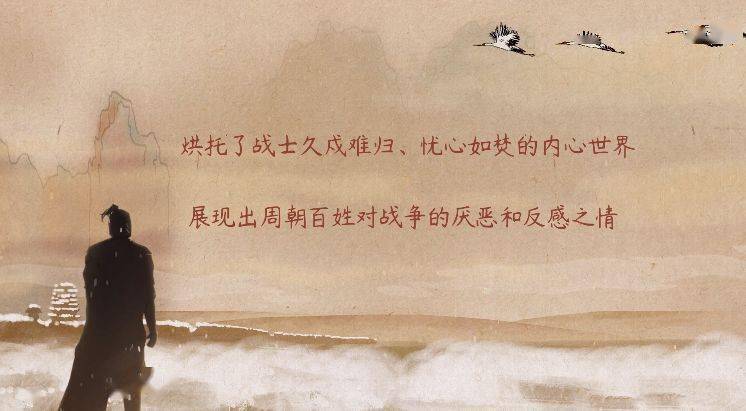 烘托了战士久戍难归、忧心如焚的内心世界
展现出周朝百姓对战争的厌恶和反感之情